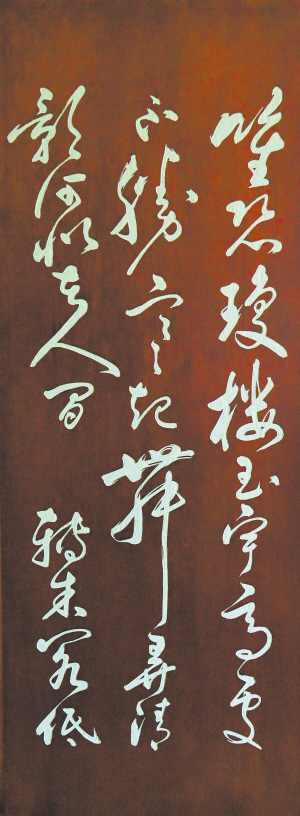 唯恐瓊樓玉宇高處
不勝寒起舞弄清
影何似在人間 轉朱閣低